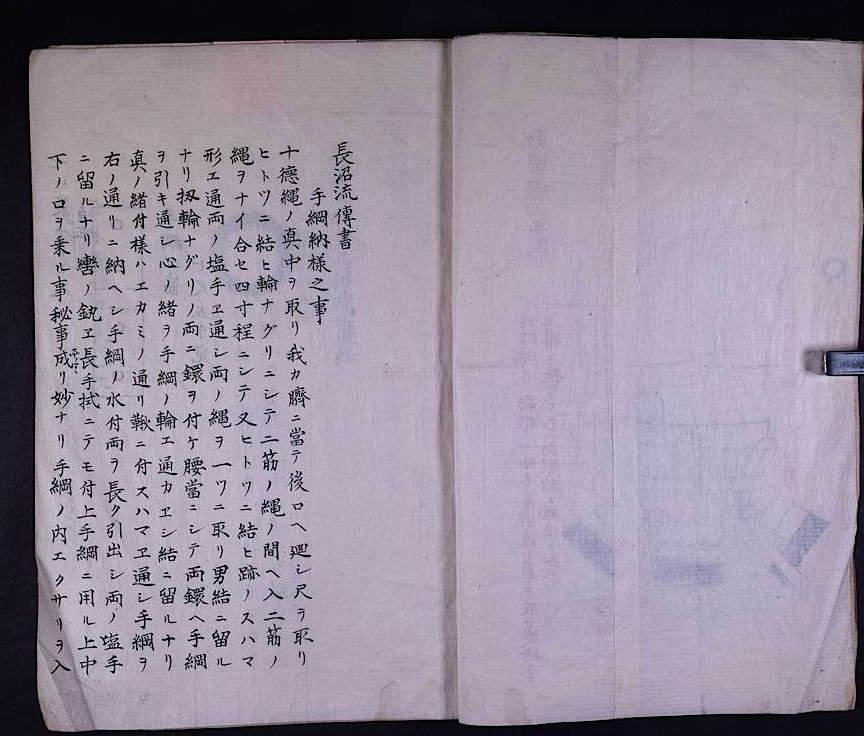 長沼流傳書
手綱納様之事
十德縄ノ真中ヲ取リ我カ臍ニ當テ後ロヘ廻シ尺ヲ取リ
ヒトツニ結ヒ輪ナグリニシテ二筋ノ縄ノ間ヘ入二筋ノ
縄ヲナイ合セ四寸程ニシテ又ヒトツニ結ヒ跡ノスハマ
形エ通両ノ塩手ヱ通シ両ノ縄ヲ一ツニ取リ男結ニ留ル
ナリ扨輪ナグリノ両ニ鐶ヲ付ケ腰當ニシテ両鐶ヘ手綱
ヲ引キ通シ心ノ緒ヲ手綱ノ輪エ通カヱシ結ニ留ルナリ
真ノ緒付様ハエカミノ通リ鞦ニ付スハマヱ通シ手綱ヲ
右ノ通リニ納ヘシ手綱ノ水付両ヲ長ク引出シ両ノ塩手
ニ留ルナリ轡ノ ヱ長手拭ニテモ付上手綱ニ用ル上中
下ノ口ヲ乗ル事秘事成リ妙ナリ手綱ノ内エクサリヲ入